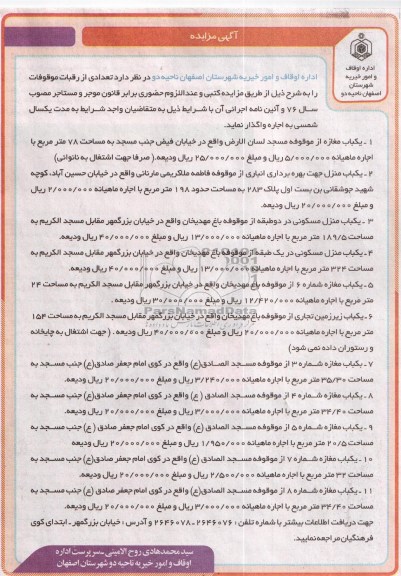 آگهی مزایده
اداره اوقاف
و امور خیریه
شهرستان
اصفهان ناحیه دو
اداره اوقاف و امور خیریه شهرستان اصفهان ناحیه دو در نظر دارد تعدادی از رقبات موقوفات
را به شرح ذیل از طریق مزایده کتبی و عندالزوم حضوری برابر قانون موجر و مستاجر مصوب
سال ۷۶ و آئین نامه اجرائی آن با شرایط ذیل به متقاضیان واجد شرایط به مدت یکسال
شمسی به اجاره واگذار نماید.
۱ ـ یکباب مغازه از موقوفه مسجد لسان الارض واقع در خیابان فیض جنب مسجد به مساحت ۷۸ متر مربع با
اجاره ماهیانه ۵/۰۰۰/۰۰۰ ریال و مبلغ ۲۵/۰۰۰/۰۰۰ ریال ودیعه.( صرفا جهت اشتغال به نانوائی)
۲ ـ یکباب منزل جهت بهره برداری انباری از موقوفه فاطمه ملاکریمی مارنانی واقع در خیابان حسین آباد، کوچه
شهید جوشقانی بن بست اول پلاک ۲۸۳ به مساحت حدود ۱۹۸ متر مربع با اجاره ماهیانه ۲/۰۰۰/۰۰۰ ریال
و مبلغ ۲۰/۰۰۰/۰۰۰ ریال ودیعه.
۳ ـ یکباب منزل مسکونی در دوطبقه از موقوفه باغ مهدیخان واقع در خیابان بزرگمهر مقابل مسجد الکریم به
مساحت ۱۸۹/۵ متر مربع با اجاره ماهیانه ۱۳/۰۰۰/۰۰۰ ریال و مبلغ ۴۰/۰۰۰/۰۰۰ ریال ودیعه.
۴ ـ یکباب منزل مسکونی در یک طبقه از موقوفه باغ مهدیخان واقع در خیابان بزرگمهر مقابل مسجد الکریم به
مساحت ۳۲۴ متر مربع با اجاره ماهیانه ۱۳/۰۰۰/۰۰۰ ریال و مبلغ ۴۰/۰۰۰/۰۰۰ ریال ودیعه.
۵ ـ یکباب مغازه شماره ۶ از موقوفه باغ مهدیخان واقع در خیابان بزرگمهر مقابل مسجد الکریم به مساحت ۲۴
متر مربع با اجاره ماهیانه ۱۲/۴۲۰/۰۰۰ ریال و مبلغ ۳۰/۰۰۰/۰۰۰ ریال ودیعه.
۶ ـ یکباب زیرزمین تجاری از موقوفه باغ مهدیخان واقع در خیابان بزرگمهر مقابل مسجد الکریم به مساحت ۱۵۴
متر مربع با اجاره ماهیانه ۲۰/۰۰۰/۰۰۰ ریال و مبلغ ۴۰/۰۰۰/۰۰۰ ریال ودیعه . ( جهت اشتغال به چایخانه
و رستوران داده نمی شود)
۷ ـ یکباب مغازه شماره ۳ از موقوفه مسجد الصادق(ع) واقع در کوی امام جعفر صادق(ع) جنب مسجد به
مساحت ۳۵/۳۰ متر مربع با اجاره ماهیانه ۳/۲۴۰/۰۰۰ ریال و مبلغ ۲۰/۰۰۰/۰۰۰ ریال ودیعه.
۸ ـ یکباب مغازه شماره ۴ از موقوفه مسجد الصادق (ع) واقع در کوی امام جعفر صادق(ع) جنب مسجد به
مساحت ۳۴/۴۰ متر مربع با اجاره ماهیانه ۳/۰۰۰/۰۰۰ ریال و مبلغ ۲۰/۰۰۰/۰۰۰ ریال ودیعه.
۹ ـ یکباب مغازه شماره ۵ از موقوفه مسجد الصادق (ع) واقع در کوی امام جعفر صادق ( ع) جنب مسجد به
مساحت ۲۰/۵ متر مربع با اجاره ماهیانه ۱/۹۵۰/۰۰۰ ریال و مبلغ ۲۰/۰۰۰/۰۰۰ ریال ودیعه
۱۰ ـ یکباب مغازه شماره ۷ از موقوفه مسجد الصادق(ع) واقع در کوی امام جعفر صادق(ع) جنب مسجد به
مساحت ۳۲ متر مربع با اجاره ماهیانه ۲/۵۰۰/۰۰۰ ریال و مبلغ ۲۰/۰۰۰/۰۰۰ ریال ودیعه.
۱۱ ـ یکباب مغازه شماره ۸ از موقوفه مسجد الصادق(ع) واقع در کوی امام جعفر صادق(ع) جنب مسجد به
مساحت ۳۴/۴۰ متر مربع با اجاره ماهیانه ۳/۰۰۰/۰۰۰ ریال و مبلغ ۲۰/۰۰۰/۰۰۰ ریال ودیعه.
جهت دریافت اطلاعات بیشتر با شماره تلفن : ۲۶۴۶۰۷۶ ـ ۲۶۴۶۰۷۸ و آدرس : خیابان بزرگمهر ـ ابتدای کوی
فرهنگیان مراجعه نمایید.
سید محمدهادی روح الامینی ـ سرپرست اداره
اوقاف و امور خیریه ناحیه دو شهرستان اصفهان
ParsNamadData